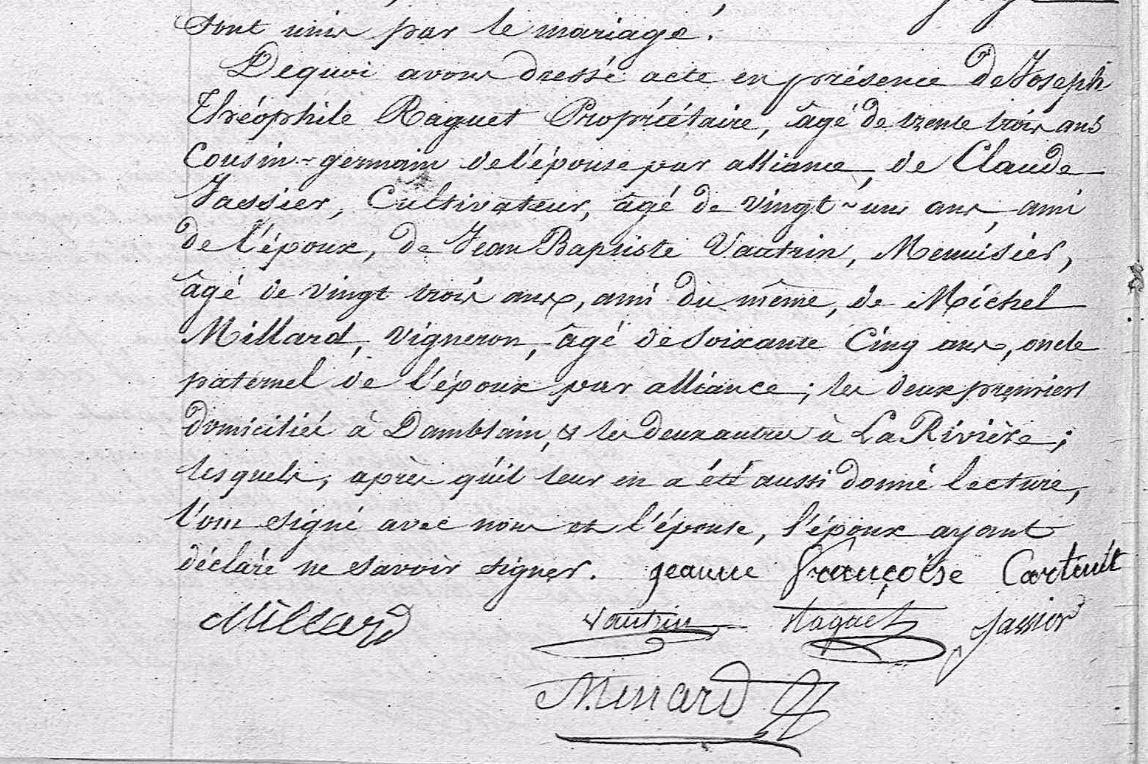 sont unis par le mariage.
Dequoi avons dressé acte en présence de Joseph
Théophile Raguet Propriétaire, âgé de trente trois ans
Cousin-germain de l'épouse par alliance, de Claude
Jassier, Cultivateur, âgé de vingt-un ans, ami
de l'époux, de Jean Baptiste Vautrin, Menuisier,
âgé de vingt trois ans, ami du même, de Michel
Millard, Vigneron, âgé de soixante Cinq ans, oncle
paternel de l'époux par alliance; les deux premiers
domiciliés à Damblain, & les deux autres à La Rivière;
lesquels, après qu'il leur en a été aussi donné lecture,
l'ont signé avec nous et l'épouse, l'époux ayant
déclaré ne savoir signer. jeanne françoise Carteuit
Millard Vautrin Raguet Jassier